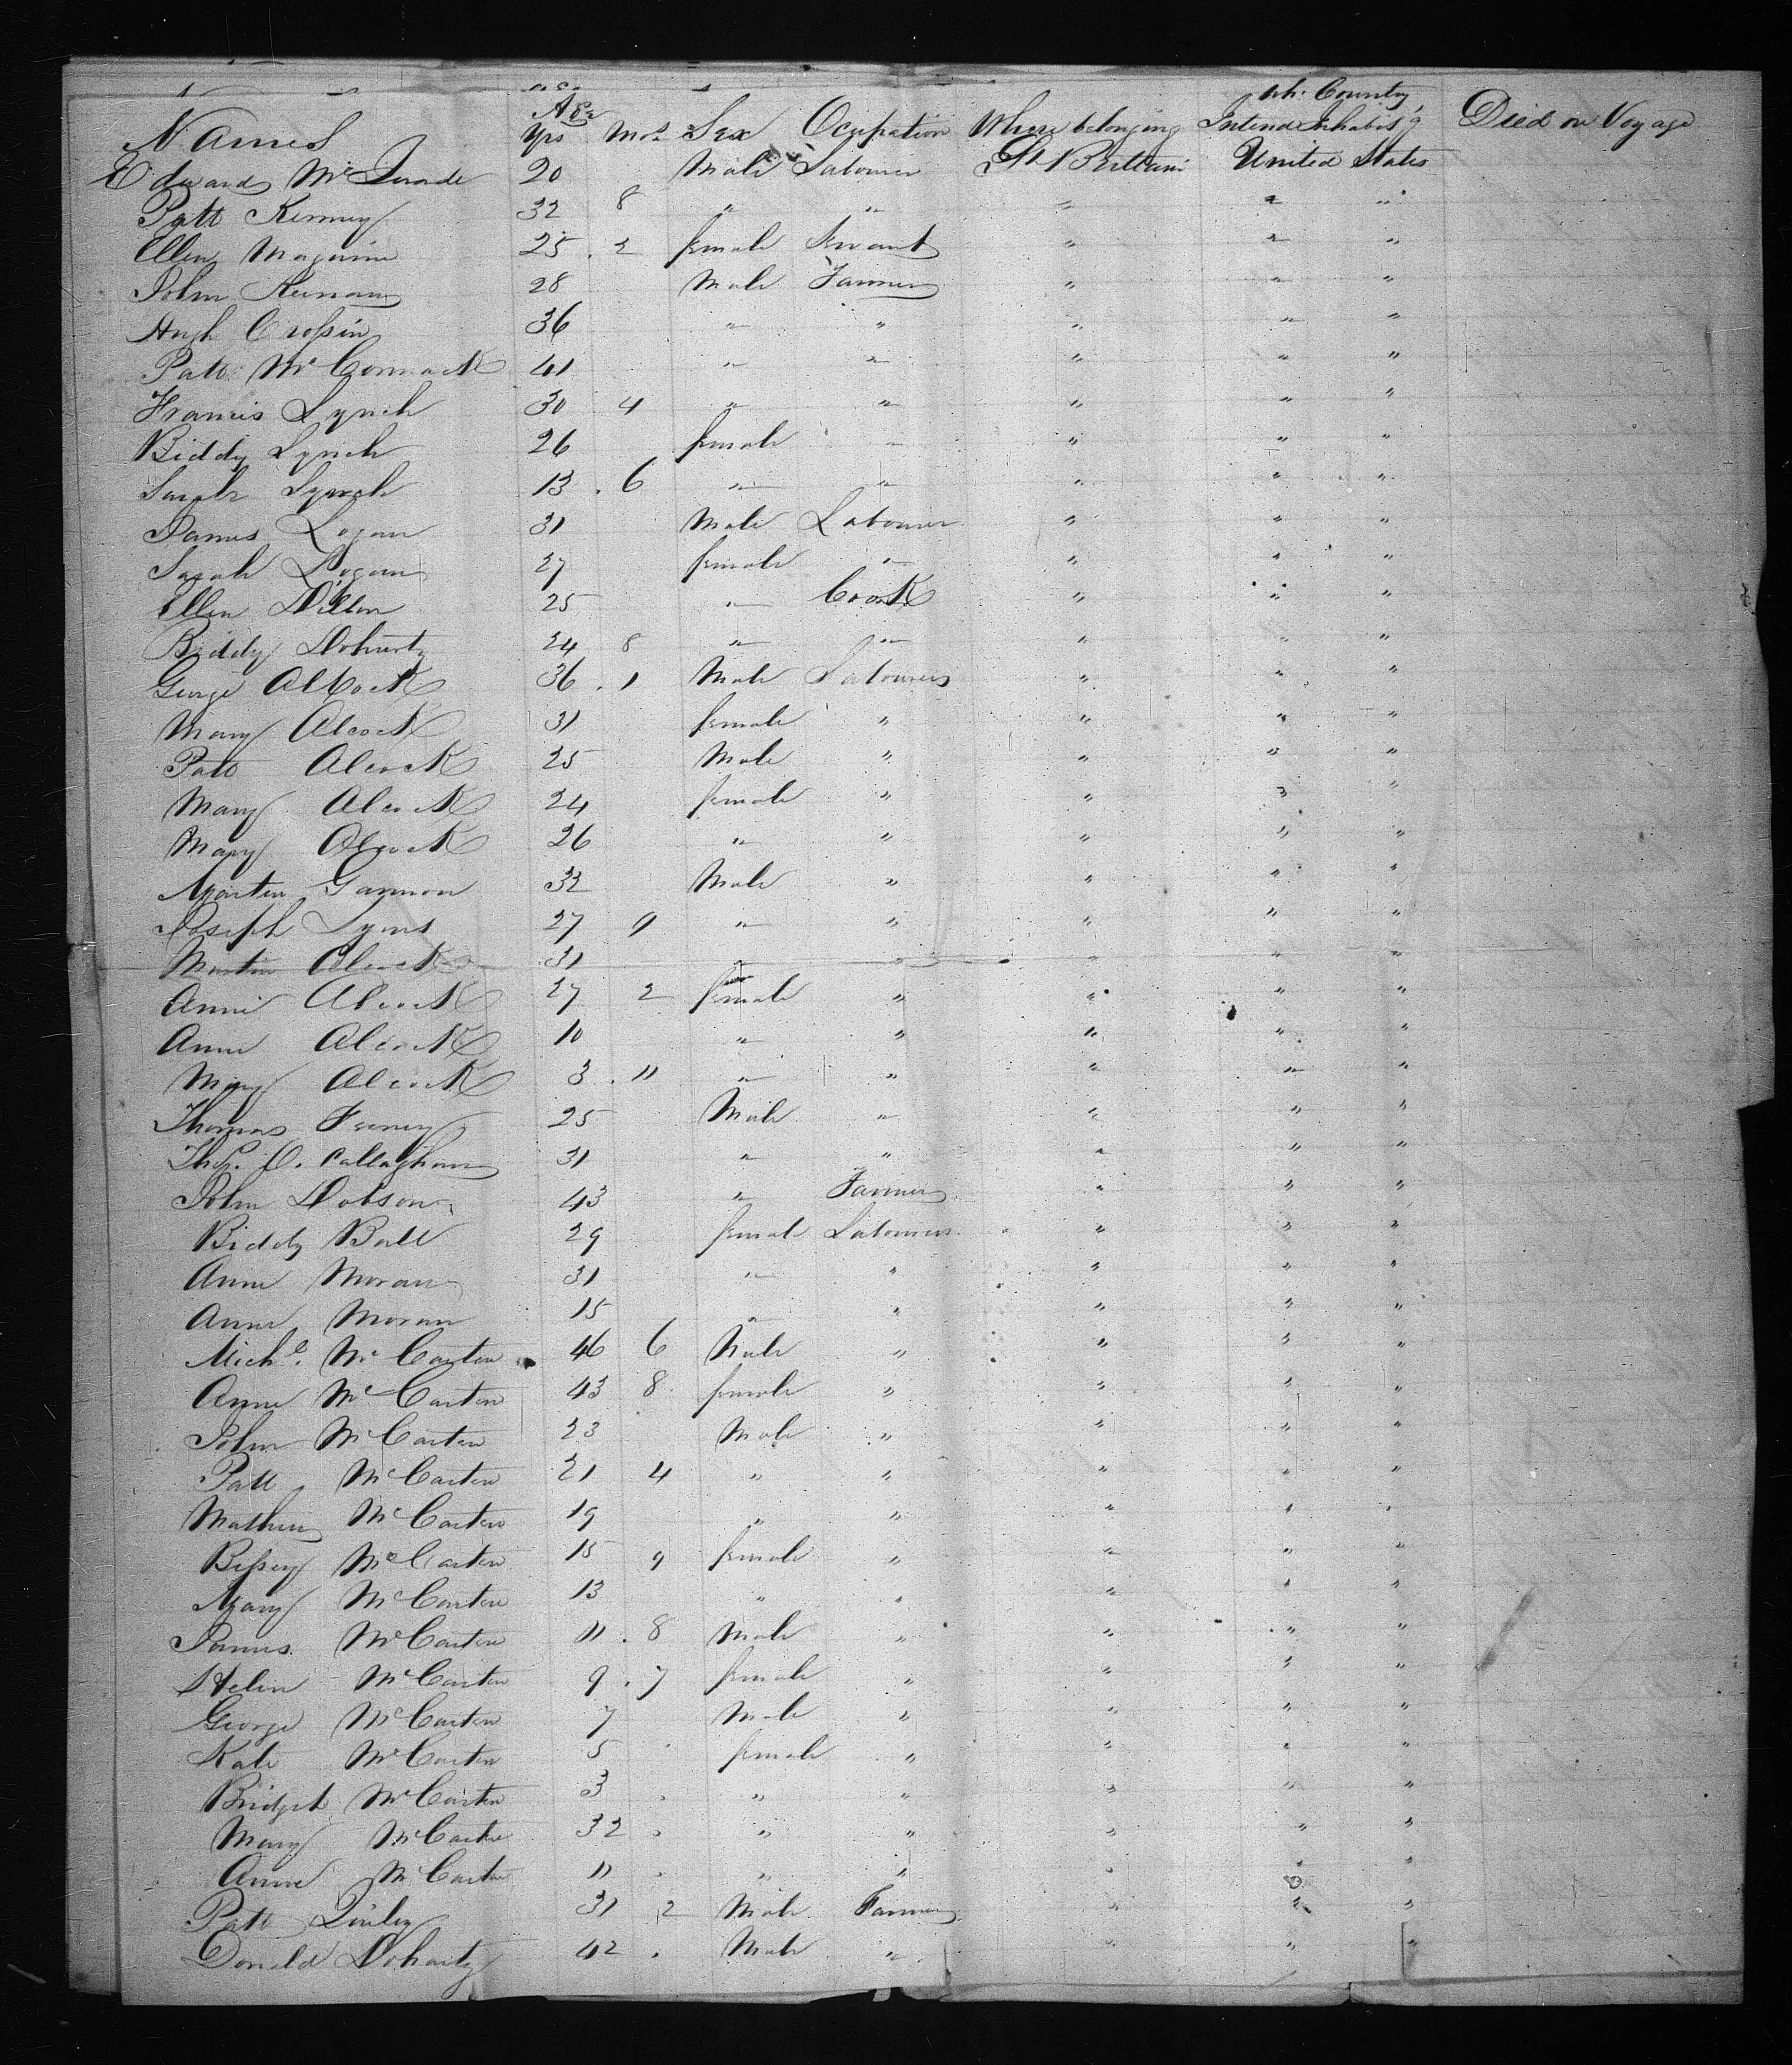 wh. Country
Names Age Yrs Mos. Sex Ocupation Where belonging Intend Inhabit'g Died on Voyage
Edward Mc 20 Male Labourer Gt Brittain United States
Patt Kenney 32 8 " " " " "
Ellen Maguire 25 . 2 female Servant " " "
John Keenan 28 Male Farmer " " "
Hugh Crossin 36 " " " " "
Patt McCormack 41 " " " " "
Francis Lynch 30 4 " " " " "
Biddy Lynch 26 female " " " "
Sarah Lynch 13 . 6 " " " " "
James Logan 31 Male Labourer " " "
Sarah Logan 27 female " " " "
Ellen Dillon 25 " Cook " " "
Biddy Doherty 24 8 " " " "
George Alcock 36 . 1 Male Labourers " " "
Mary Alcock 31 female " " " "
Patt Alcock 25 Male " " " "
Mary Alcock 24 female " " " "
Mary Alcock 26 " " " " "
Martin Gannon 32 Male " " " "
Joseph Lyons 27 9 " " " " "
Martin Alcock 31 " " " " "
Annie Alcock 27 2 female " " " "
Anne Alcock 10 " " " " "
Mary Alcock 3 . 11 " " " " "
Thomas Feeney 25 Male " " " "
Thos. O. Callaghan 31 " " " " "
John Dobson 43 " Farmer " " "
Biddy Ball 29 female Labourers " " "
Anne Moran 31 " " " " "
Anne Moran 15 " " " " "
Michl. McCarten 46 6 Male " " " "
Anne McCarten 43 8 female " " " "
John McCarten 23 Male " " " "
Patt McCarten 21 4 " " " " "
Mathew McCarten 19 " " " " "
Bessey McCarten 15 9 female " " " "
Mary McCarten 13 " " " " "
James McCarten 11 . 8 Male " " " "
Helen McCarten 9 . 7 female " " " "
George McCarten 7 Male " " " "
Kate McCarten 5 female " " " "
Bridget McCarten 3 " " " " "
Mary McCarten 32 " " " " "
Anne McCarten 11 " " " " "
Patt 31 2 Male Farmer " " "
Donald Doharty 42 Male " " " "